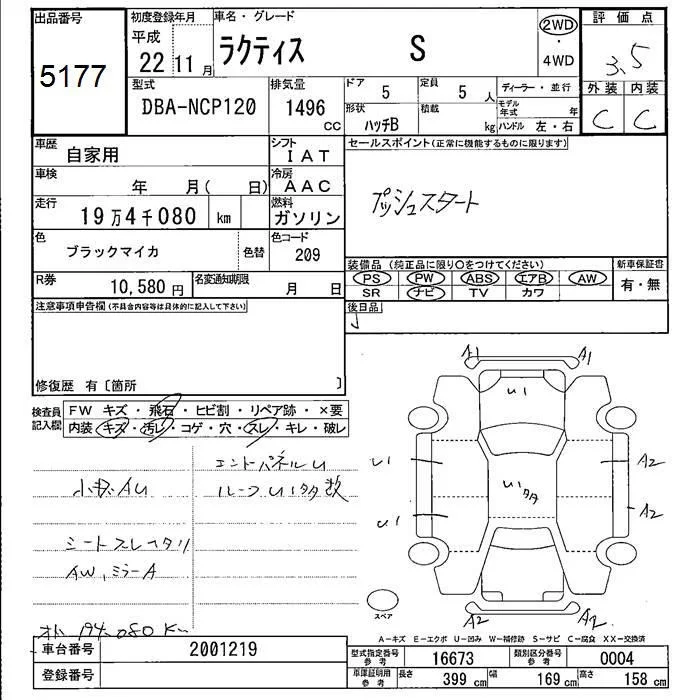 出品番号
5177
初度登録年月
平成
22 11 月
車名・グレード
ラクティス S
2WD
・
4WD
評価点
3.5
外装 内装
C C
型式
DBA-NCP120
排気量
1496
CC
ドア 5
定員 5 人
ディーラー・並行
形状
ハッチB
積載
kg
モデル年式 年
ハンドル 左・右
車歴 自家用
シフト
IAT
セールスポイント(正常に機能するものに限ります)
プッシュスタート
車検 年 月( 日)
冷房
AAC
走行 19万4千080 km
燃料
ガソリン
色
ブラックマイカ
色替
色コード
209
装備品 (純正品に限り○をつけてください)
新車保証書
PS PW ABS エアB AW
有・無
SR ナビ TV カワ
R券 10,580 円
名変通知期限 月 日
後日品
注意事項申告欄(不具合内容等は具体的に記入して下さい)
修復歴 有〔箇所 〕
検査員記入欄
FW キズ・飛石・ヒビ割・リペア跡・×要
内装 キズ・汚レ・コゲ・穴・スレ・キレ・破レ
エンドパネルU
小キズ.AU
ルーフU1タタ数
シートスレ・ヘタリ
AW,ミラーA
オト 194.080 K
A1 A1
U1
U1 A2
U1タタ
U1 A2
A2 A2
スペア
A-キズ E-エクボ U-凹み W-補修跡 S-サビ C-腐食 XX-交換済
車台番号 2001219
型式指定番号
参考
16673
類別区分番号
参考
0004
登録番号
車庫証明用
参考
長さ 399 cm
幅 169 cm
高さ 158 cm